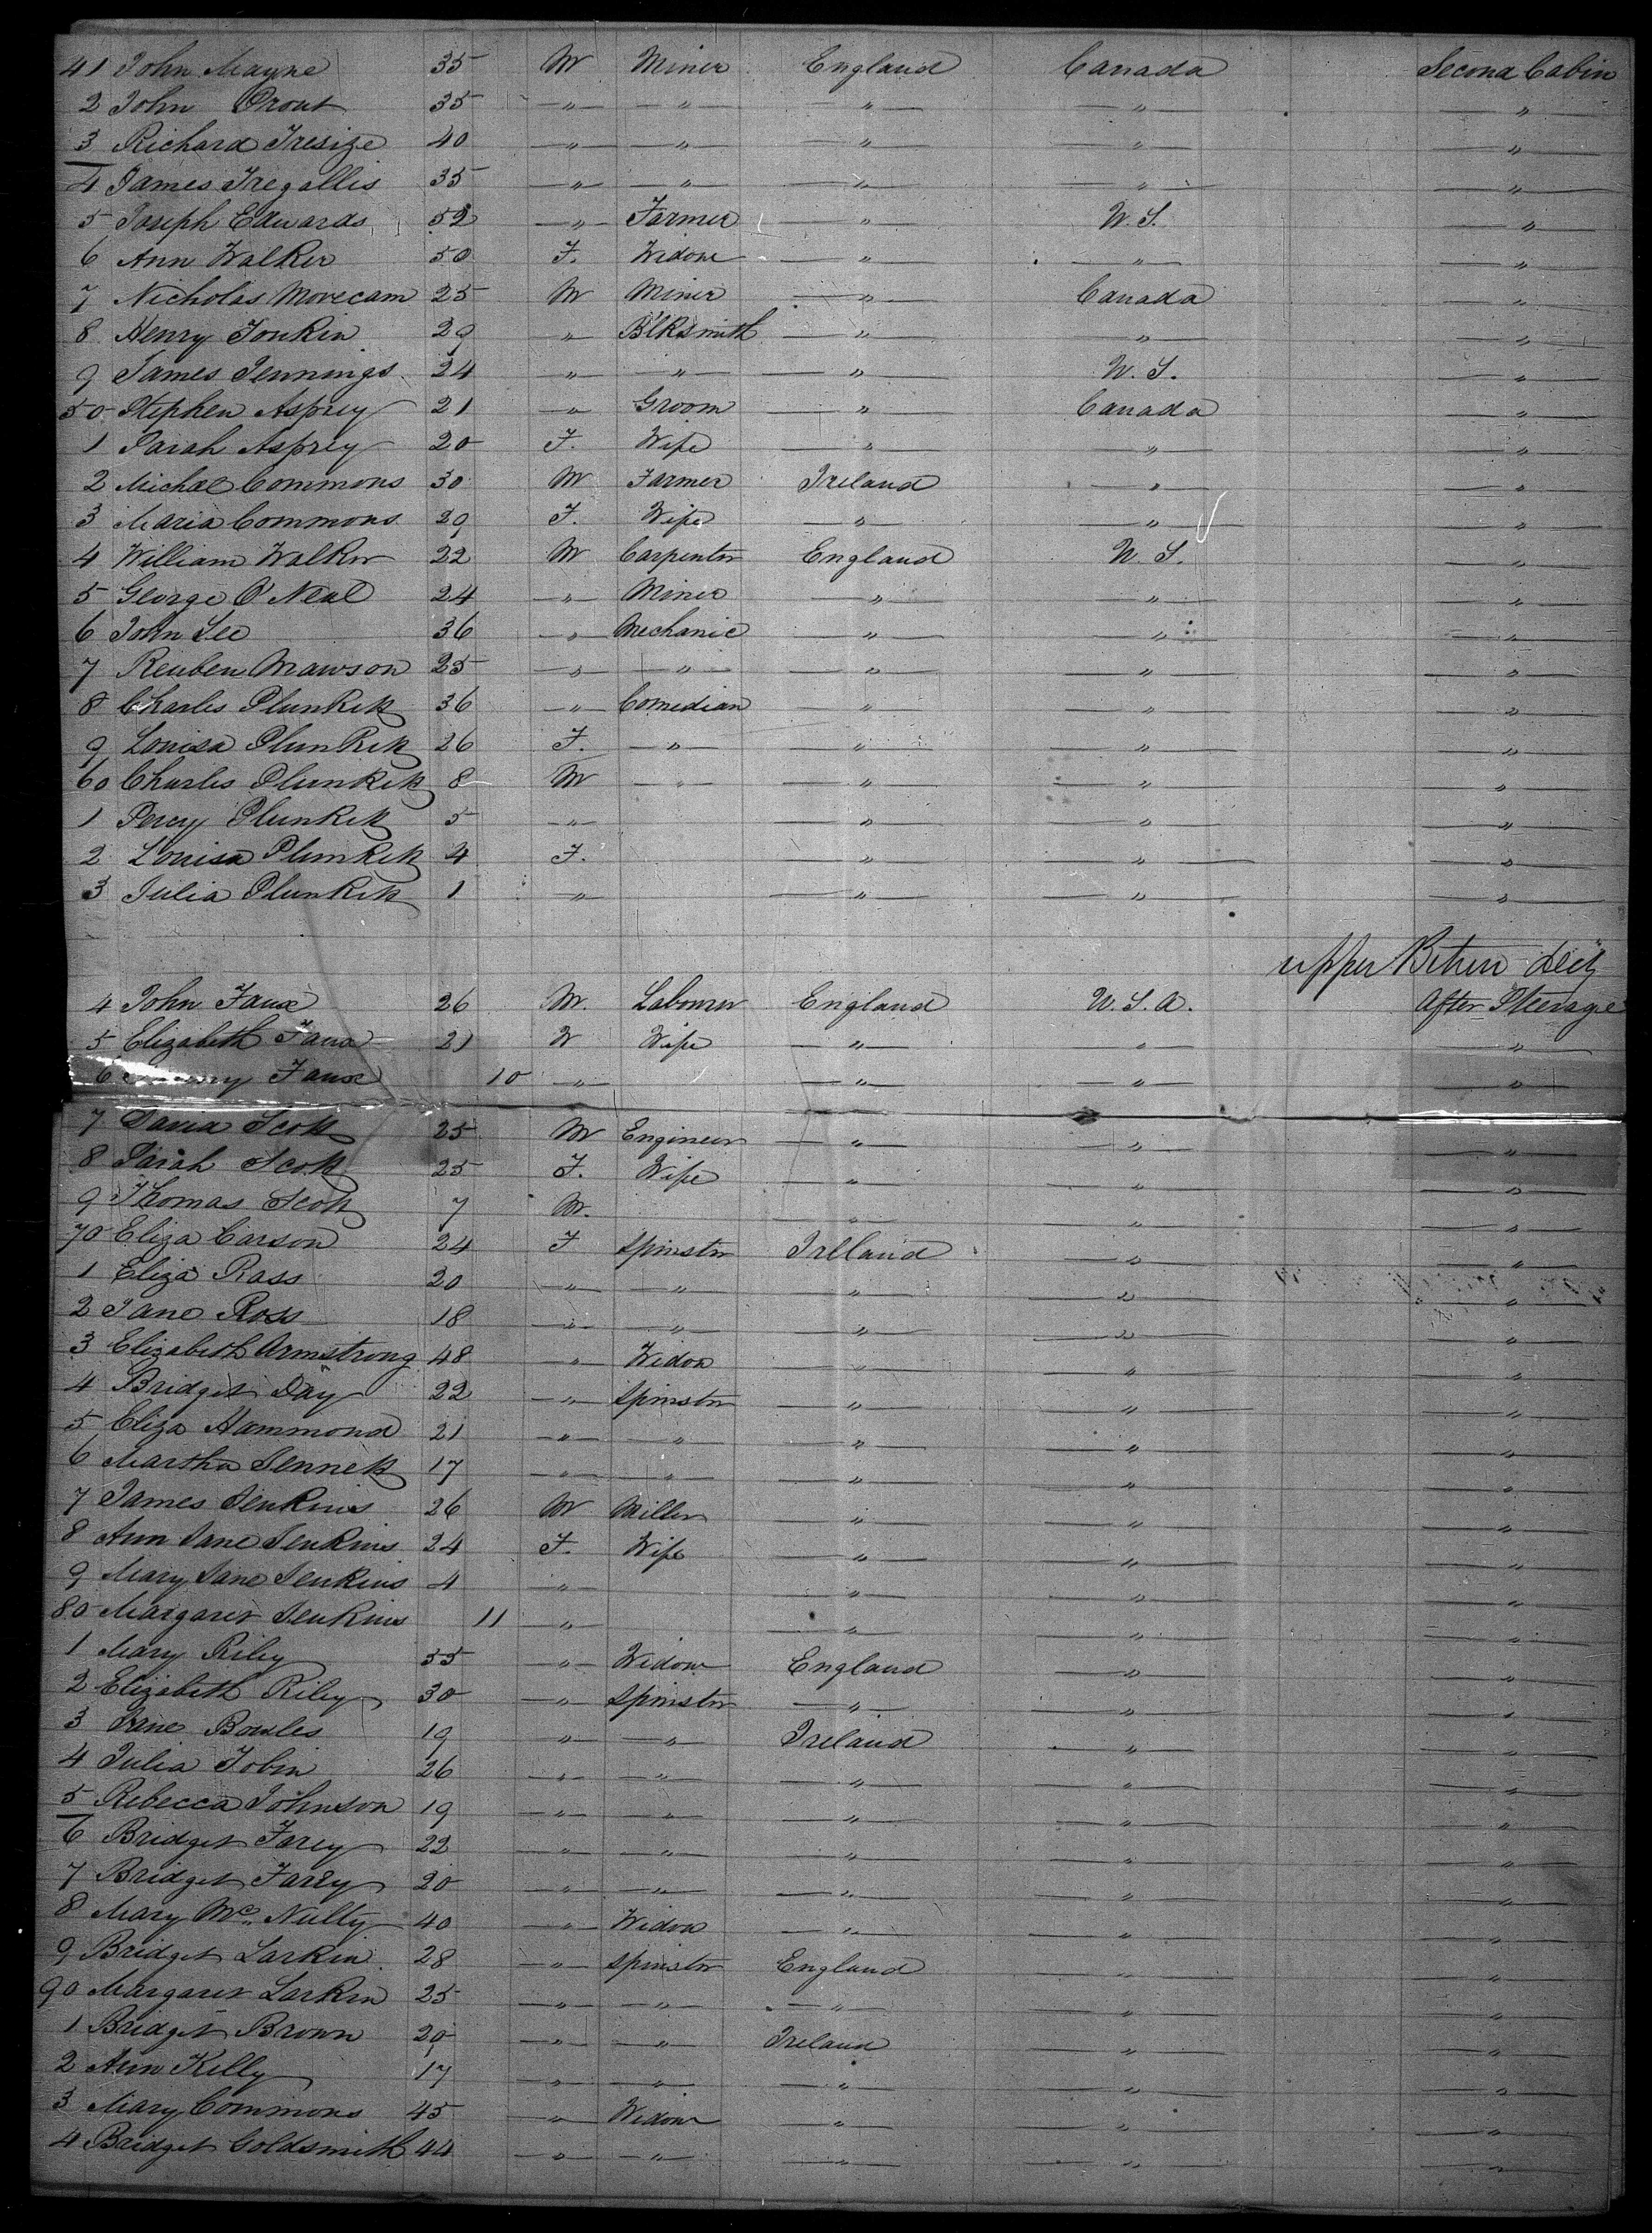 41 John Mayne 35 M Miner England Canada Second Cabin
2 John Prout 35 " " " " "
3 Richard Tresize 40 " " " " "
4 James Tregallis 35 " " " " "
5 Joseph Edwards 52 " Farmer " U.S. "
6 Ann Walker 50 F. Widow " " "
7 Nicholas Morecam 25 M Miner " Canada "
8 Henry Tonkin 29 " Blksmith " " "
9 James Jennings 24 " " " U.S. "
50 Stephen Asprey 21 " Groom " Canada "
1 Sarah Asprey 20 F. Wife " " "
2 Michael Commons 30 M Farmer Ireland " "
3 Maria Commons 29 F. Wife " " "
4 William Walker 22 M Carpenter England U.S. "
5 George O'Neal 24 " Miner " " "
6 John Lee 36 " Mechanic " " "
7 Reuben Mawson 25 " " " " "
8 Charles Plunkett 36 " Comedian " " "
9 Louisa Plunkett 26 F. " " " "
60 Charles Plunkett 8 M " " " "
1 Percy Plunkett 5 " " " "
2 Louisa Plunkett 4 F. " " "
3 Julia Plunkett 1 " " " "
upper Betwn deck
4 John Faux 26 M. Labourer England U.S.A. After Steerage
5 Elizabeth Faux 21 W Wife " " "
6 Faux 10 " " " "
7 David Scott 25 M Engineer " " "
8 Sarah Scott 25 F. Wife " " "
9 Thomas Scott 7 M. " " "
70 Eliza Carson 24 F Spinster Ireland " "
1 Eliza Ross 20 " " " " "
2 Jane Ross 18 " " " " "
3 Elizabeth Armstrong 48 " Widow " " "
4 Bridget Day 22 " Spinster " " "
5 Eliza Hammond 21 " " " " "
6 Martha Sennett 17 " " " " "
7 James Jenkins 26 M Miller " " "
8 Ann Jane Jenkins 24 F. Wife " " "
9 Mary Jane Jenkins 4 " " " "
80 Margaret Jenkins 11 " " " "
1 Mary Riley 55 " Widow England " "
2 Elizabeth Riley 30 " Spinster " " "
3 Jane Bowles 19 " " Ireland " "
4 Julia Tobin 26 " " " " "
5 Rebecca Johnson 19 " " " " "
6 Bridget Farey 22 " " " " "
7 Bridget Farey 20 " " " " "
8 Mary Mc Nulty 40 " Widow " " "
9 Bridget Larkin 28 " Spinster England " "
90 Margaret Larkin 25 " " " " "
1 Bridget Brown 20 " " Ireland " "
2 Ann Kelly 17 " " " " "
3 Mary Commons 45 " Widow " " "
4 Bridget Goldsmith 44 " " " " "